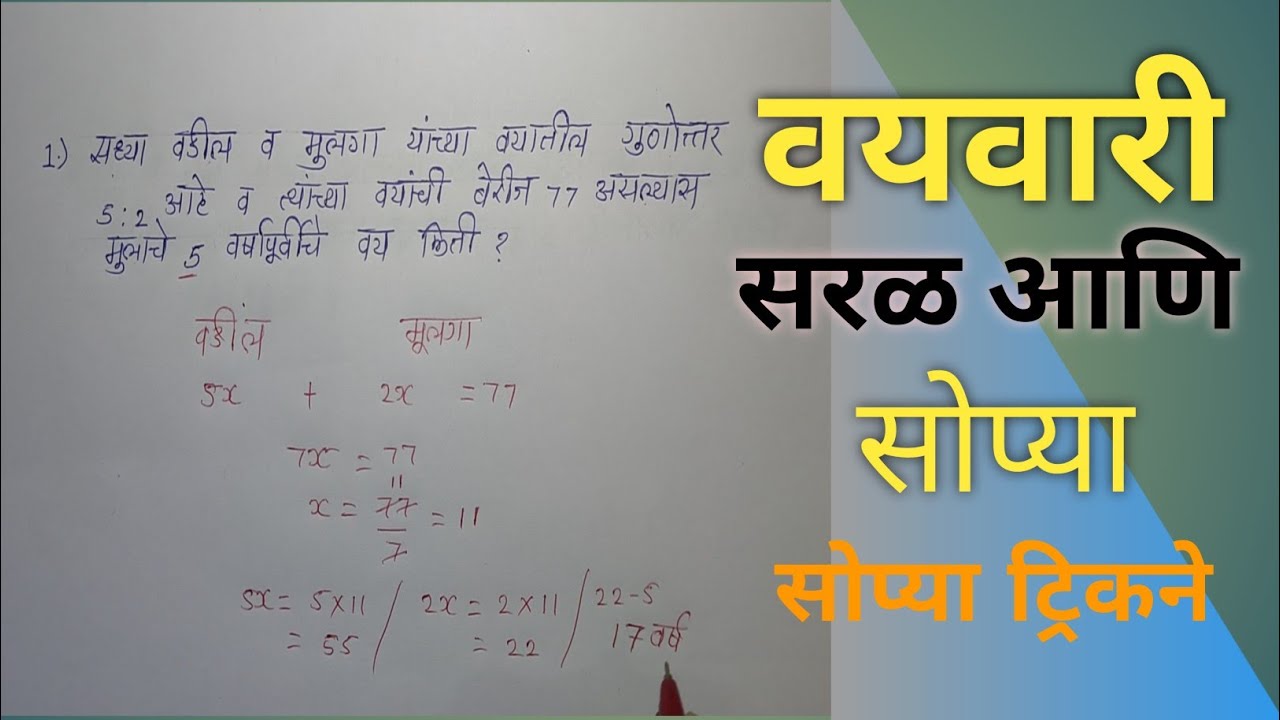 1.) सध्या वडील व मुलगा यांच्या वयातील गुणोत्तर
5:2 आहे व त्यांच्या वयांची बेरीज 77 असल्यास
मुलाचे 5 वर्षापूर्वीचे वय किती ?
वडील मूलगा
5x + 2x = 77
7x = 77
11
x = 77/7 = 11
5x = 5×11 / 2x = 2×11 / 22-5
= 55 / = 22 / 17 वर्ष
वयवारी
सरळ आणि
सोप्या
सोप्या ट्रिकने